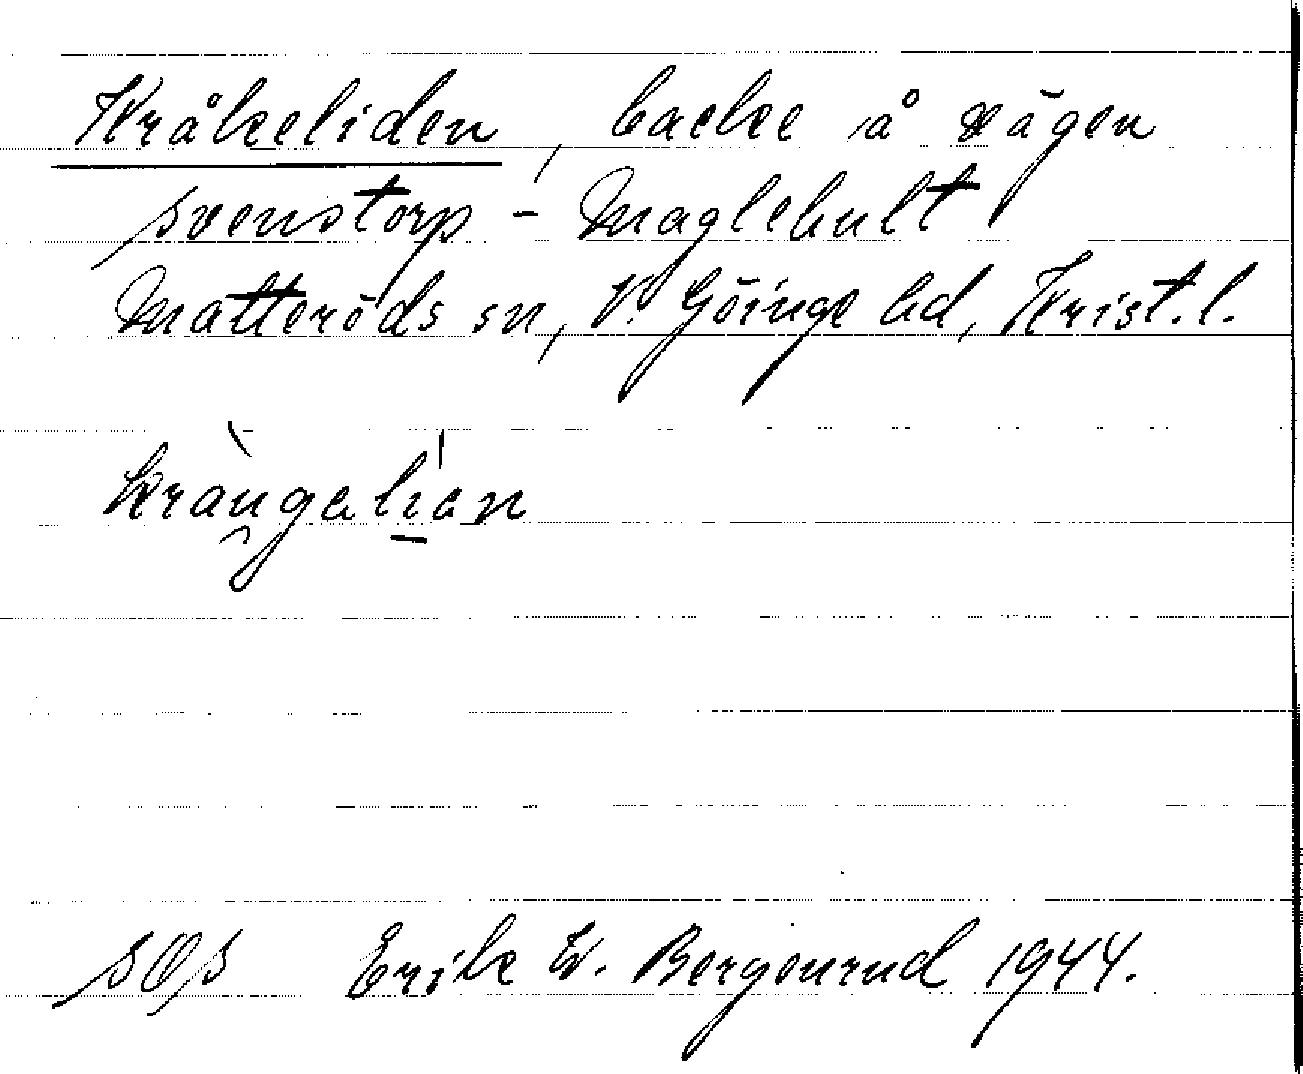 Kråkeliden, backe å vägen
Svenstorp - Maglehult
Matteröds sn, V. Göinge hd, Krist. l.
kràu̯galián
SOS Erik W. Bergenrud 1944.